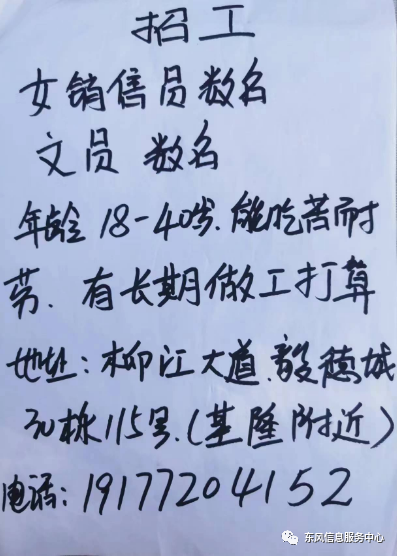 招工
女销售员数名
文员 数名
年龄18-40岁.能吃苦而才
劳.有长期做工打算
地址:柳江大道.毅德城
30栋115号.(基隆附近)
电话:19177204152
东风信息服务中心